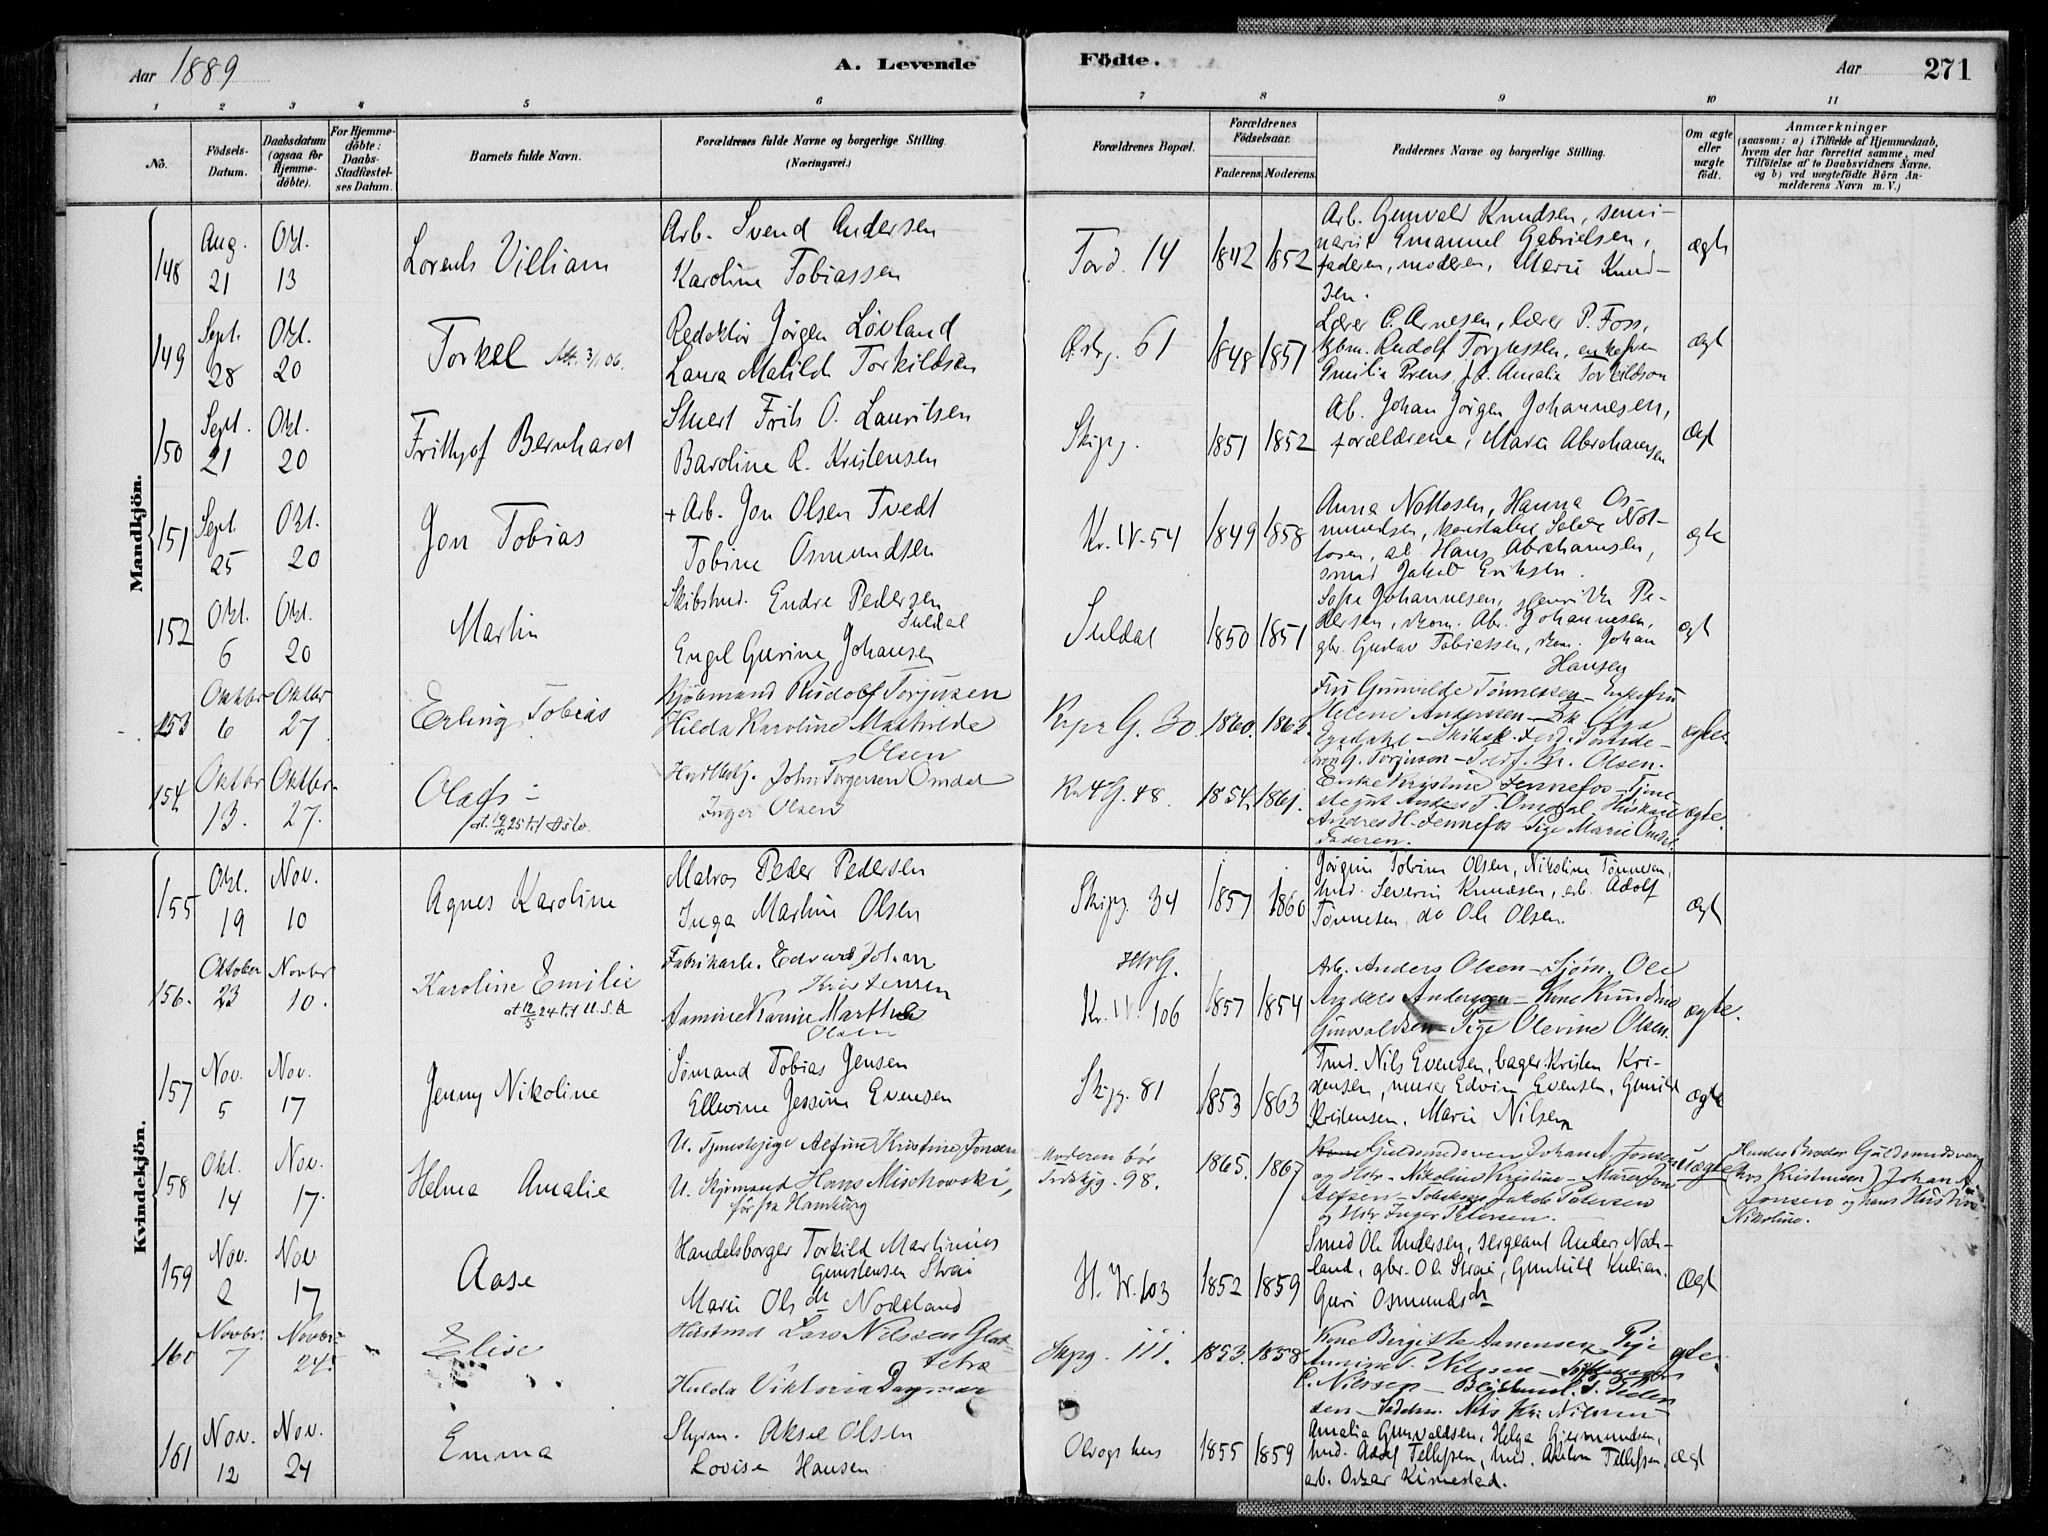 Aar 1889
A. Levende Födte.
Aar
271
1 2 3 4 5 6 7 8 9 10 11
No.
Födsels-Datum.
Daabsdatum (ogsaa for Hjemme-döbte).
For Hjemme-döbte: Daabs-Stadfæstel-ses Datum.
Barnets fulde Navn.
Forældrenes fulde Navne og borgerlige Stilling. (Næringsvei.)
Forældrenes Bopæl.
Forældrenes Födselsaar.
Faderens. Moderens.
Faddernes Navne og borgerlige Stilling.
Om ægte eller uægte födt.
Anmærkninger
(saasom: a) i Tilfælde af Hjemmedaab,
hvem der har forrettet samme, med
Tilföielse af to Daabsvidners Navne.
og b) ved uægtefödte Börn An-
melderens Navn m. V.)
Mandkjön.
148 Aug. 21 Okt. 13
Lorents Villiam
Arb. Svend Andersen
Karoline Tobiassen
14 1842 1852
Arb. Gunvald Knudsen, semi-
narist Emanuel Gabrielsen,
faderen, moderen, Marie Knud-
sen.
ægte
149 Sept. 28 Okt. 20
Torkel
Redaktør Jørgen Løvland
Laura Matild Torkildsen
61 1848 1851
Lærer C. Arnesen, lærer P. Foss,
kjbm. Rudolf Torjussen, enkefru
Emilie Prens, fr. Amalia Torkildson
ægt
150 Sept. 21 Okt. 20
Frithjof Bernhard
Stuert Frits O. Lauritsen
Baroline R. Kristensen
Skipg. 1851 1852
Arb. Johan Jörgen Johannesen,
forældrene, Maria Abrahamsen
Ægt
151 Sept 25 Okt. 20
Jon Tobias
+ Arb. Jon Olsen Tvedt
Tobine Osmundsen
Kr. IV. 54 1849 1858
Anna Nottosen, Hanna Os-
mundsen, konstabel Not-
tosen, ab. Hans Abrahamsen,
smed Jakob Eriksen.
ægte
152 Okt. 6 Okt. 20
Martin
Skibstmd. Endre Pedersen
Suldal
Engel Gurine Johansen
Suldal 1850 1851
Sofie Johannesen, Henrik Pe-
dersen, skom. Abr. Johannesen,
gbr. Gustav Tobiassen, skom. Johan
Hansen
ægt
153 Oktbr 6 Oktbr 27
Erling Tobias
Kjöbmand Rudolf Torjusen
Hilda Karoline Mathilde
Olsen
30. 1860. 1863.
Fru Gunvilde Tønnessen - Enkefru
Helene Anderssen - Frk. Olga
Torjuson - Olsen.
ægte.
154 Oktbr 13. Oktbr 27.
Olaf
at. 19/10 25 til Oslo.
John Torgersen Omdal
Inger Olsen
48. 1854. 1861.
Enke Kristine Fennefos - Tjene
stegut Anders T. Omdal
Andres H. Fennefos - Pige Marie Omdal.
Faderen.
ægte.
Kvindekjön.
155 Okt. 19 Nov. 10
Agnes Karoline
Matros Peder Pedersen
Inga Martine Olsen
Skipg. 34 1857 1860
Jörgine Tobine Olsen, Nikoline Tönnesen,
tmd. Severin Knudsen, arb. Adolf
Tönnesen, do Ole Olsen.
ægt
156. Oktober 23 Novbr 10.
Karoline Emilie
at 12/5 24 til U.S.A
Fabrikarb. Edvard Johan
Kristensen
Marthea
Olsen
Kr. IV 106 1857 1854
Arb. Anders Olsen - Sjöm. Ole
Anders Andersen - Kone
Gunvaldsen - Pige Olevine Olsen.
ægte.
157 Nov. 5 Nov. 17
Jenny Nikoline
Sömand Tobias Jensen
Ellevine Jessine Evensen
Skipg. 81 1853 1863
Tmd. Nils Evensen, bager Kristen Kri-
stensen, murer Edvin Evensen, Gunild
Kristensen, Marie Nilsen
ægte
158 Okt. 14 Nov. 17.
Helma Amalie
U. Tjenestepige Alfine Kristine Jonsen
U. Styrmand Hans Mischowski,
för fra Hamburg
Moderen bor
98. 1865. 1867
Guldsmedsven Johan A. Jonsen
og Hstr. Nikoline Kristine - Murer
Jakob Petersen
og Hstr Inger Petersen.
uægte
Hendes Broder Guldsmedsven
(hos Kristensen) Johan A.
Jonsen og hans Hustru
Nikoline.
159 Nov. 2 Nov 17
Aase
Handelsborger Torkild Martinius
Gunstensen Strai
Marie Olsdtr Nodeland
H. W. 103 1852 1859
Smed Ole Andersen, sergeant Anders Node-
land, gbr. Ole Strai, Gunhild Kulien.
Guri Osmundsdtr
Ægt
160 Novbr. 7 Novbr. 24.
Elise
Lars Nilssen
Hulda Viktoria Dagmar
Skpg. 111. 1853. 1858
Kone Birgitte Pige
Nilssen
C. Nilssen
Nils Kr. Nilssen
161 Nov. 12 Nov. 24
Emma
Styrm. Aksel Olsen
Lovise Hansen
1855 1859
Amalia Gunvaldsen, Helga Gjermundsen,
tmd. Adolf Tellefsen, tmd. Anton Tellefsen,
arb. Oskar Kirnestad.
ægt